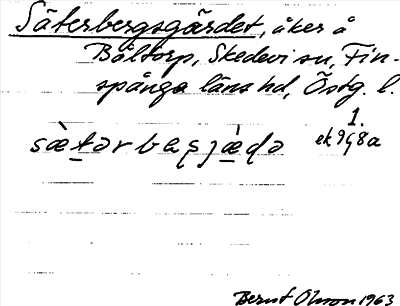 Säterbergsgärdet, åker å
Båltorp, Skedevi sn, Fin-
spånga läns hd, Östg. l.
1.
sæ̀tərbæʂjæ̀ɖə ek 9f,8a
Bernt Olson 1963